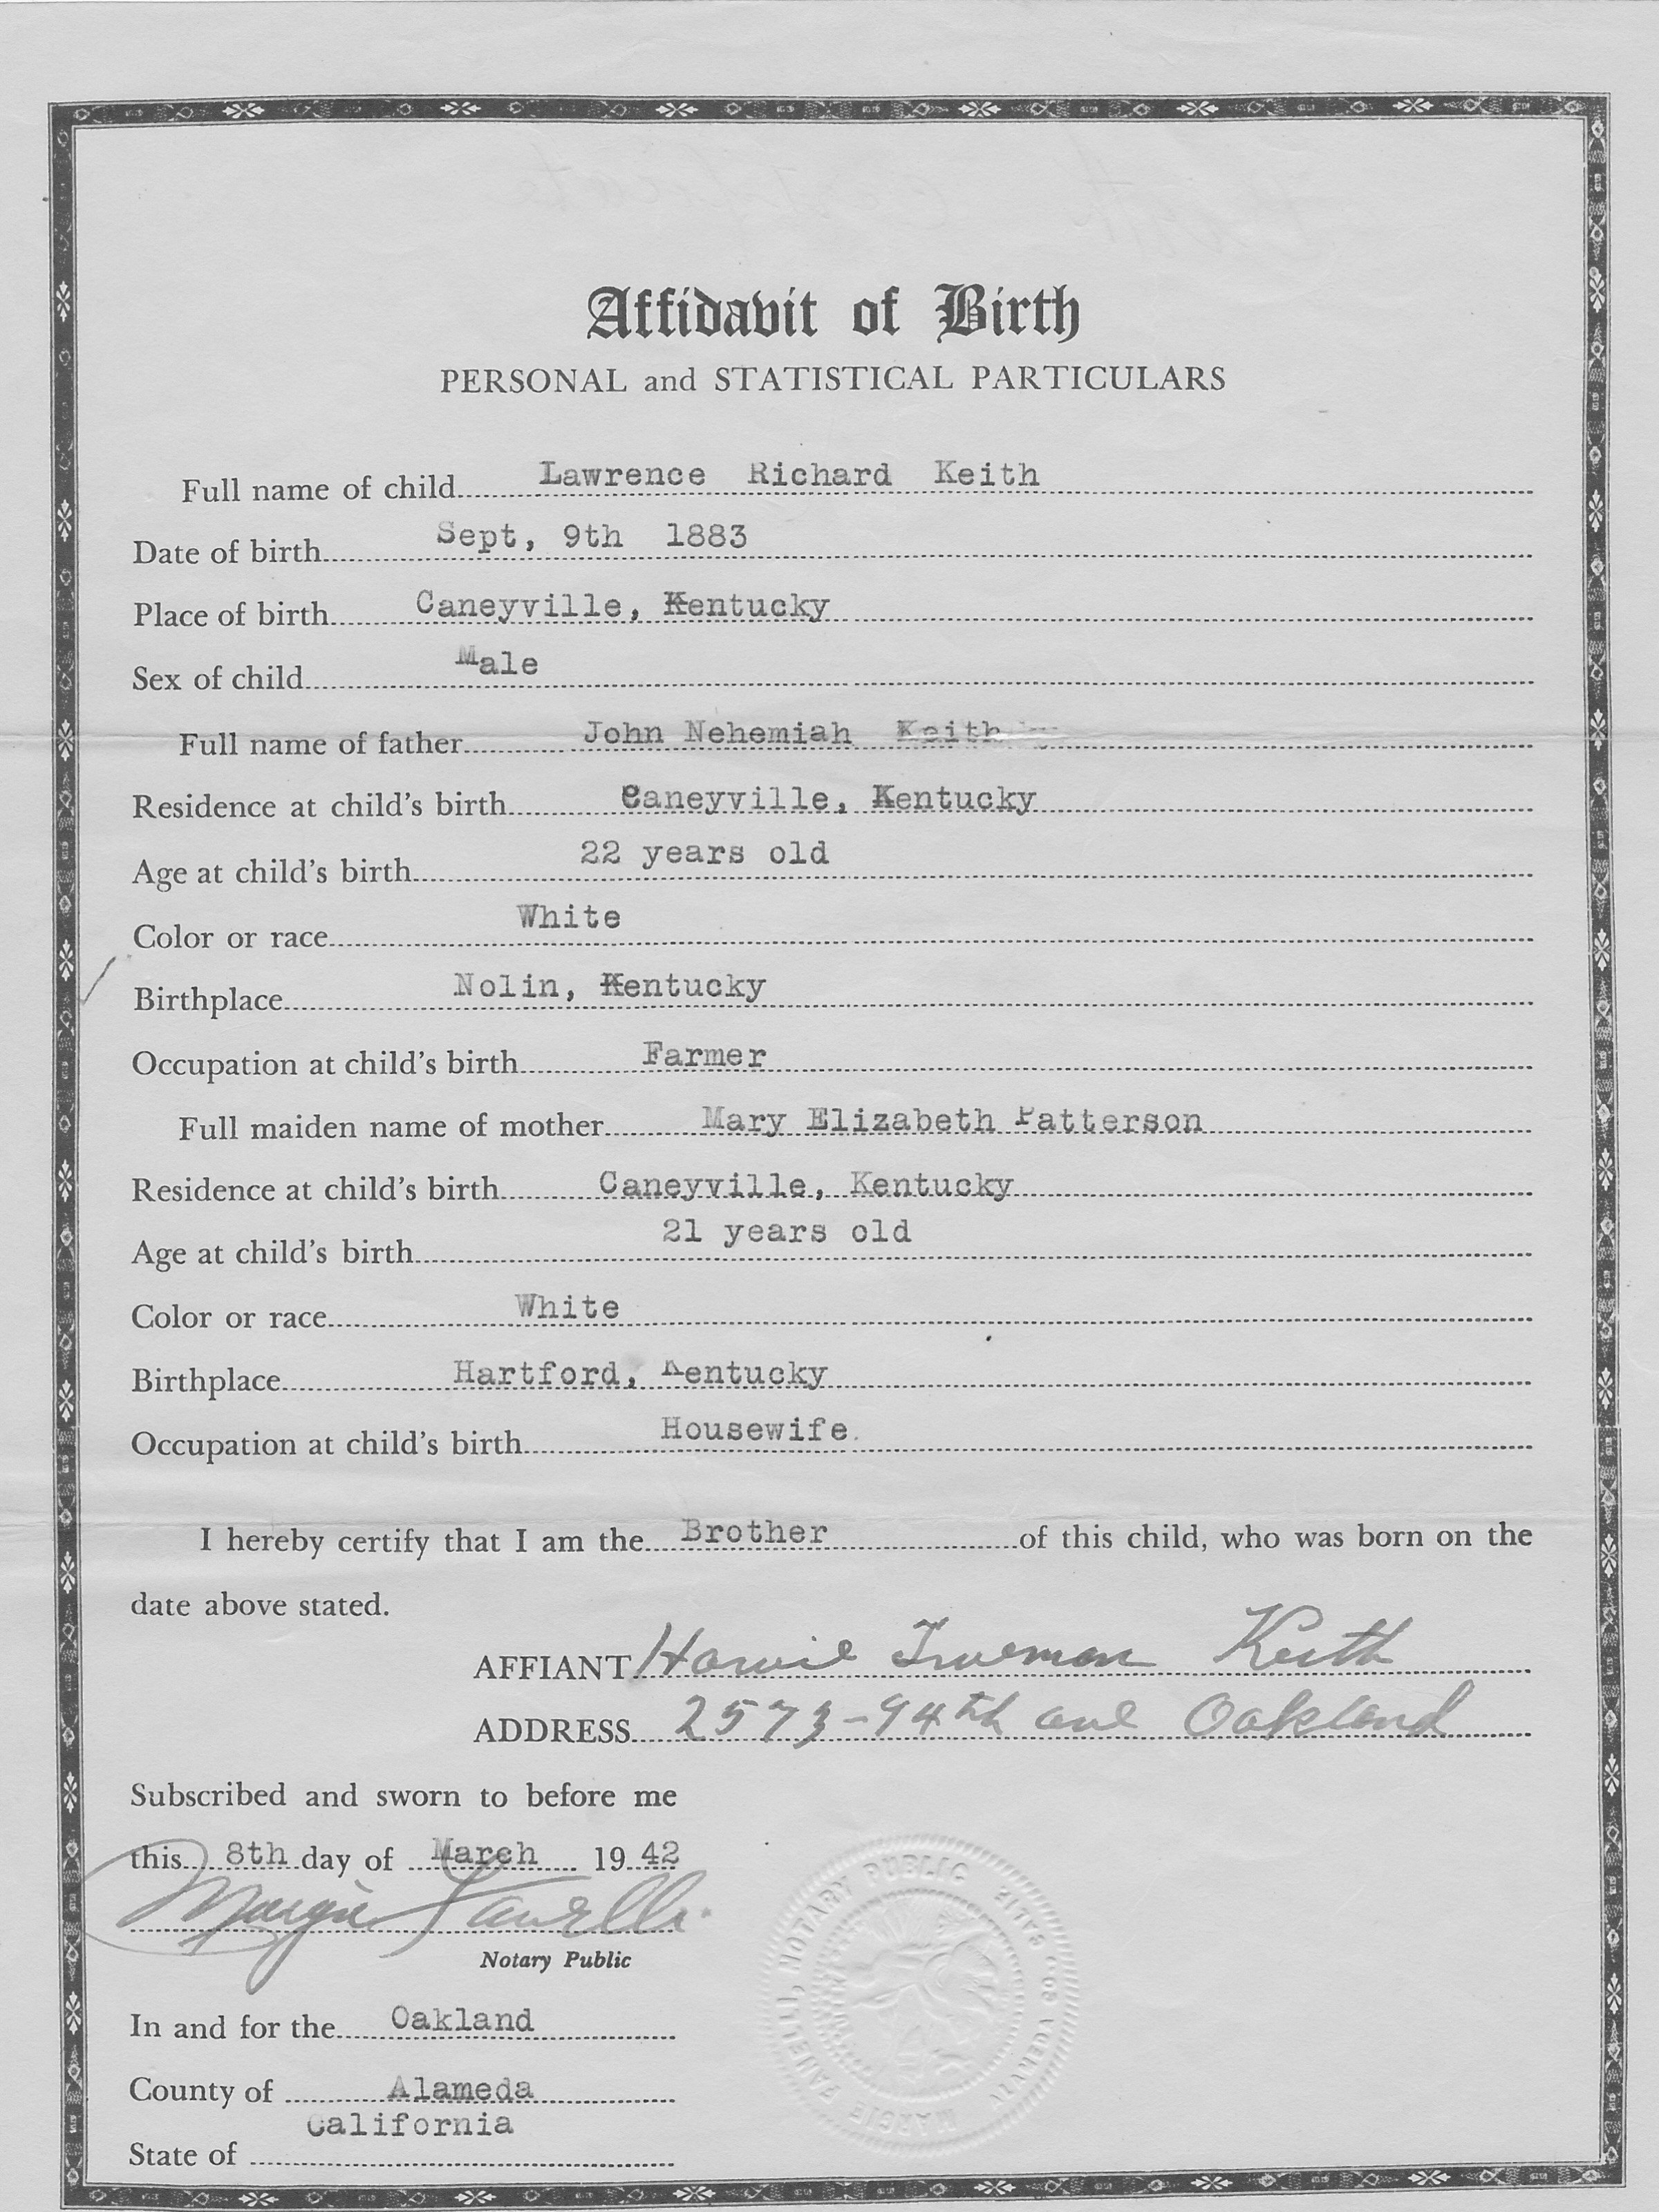 Affidavit of Birth
PERSONAL and STATISTICAL PARTICULARS
Full name of child Lawrence Richard Keith
Date of birth Sept, 9th 1883
Place of birth Caneyville, Kentucky
Sex of child Male
Full name of father John Nehemiah Keith
Residence at child's birth Caneyville, Kentucky
Age at child's birth 22 years old
Color or race White
Birthplace Nolin, Kentucky
Occupation at child's birth Farmer
Full maiden name of mother Mary Elizabeth Patterson
Residence at child's birth Caneyville, Kentucky
Age at child's birth 21 years old
Color or race White
Birthplace Hartford, Kentucky
Occupation at child's birth Housewife.
I hereby certify that I am the Brother of this child, who was born on the
date above stated.
AFFIANT Trueman Keith
ADDRESS 2573-94th ave Oakland
Subscribed and sworn to before me
this 8th day of March 1942
Fanelli
Notary Public
In and for the Oakland
County of Alameda
State of California
FANELLI, NOTARY PUBLIC